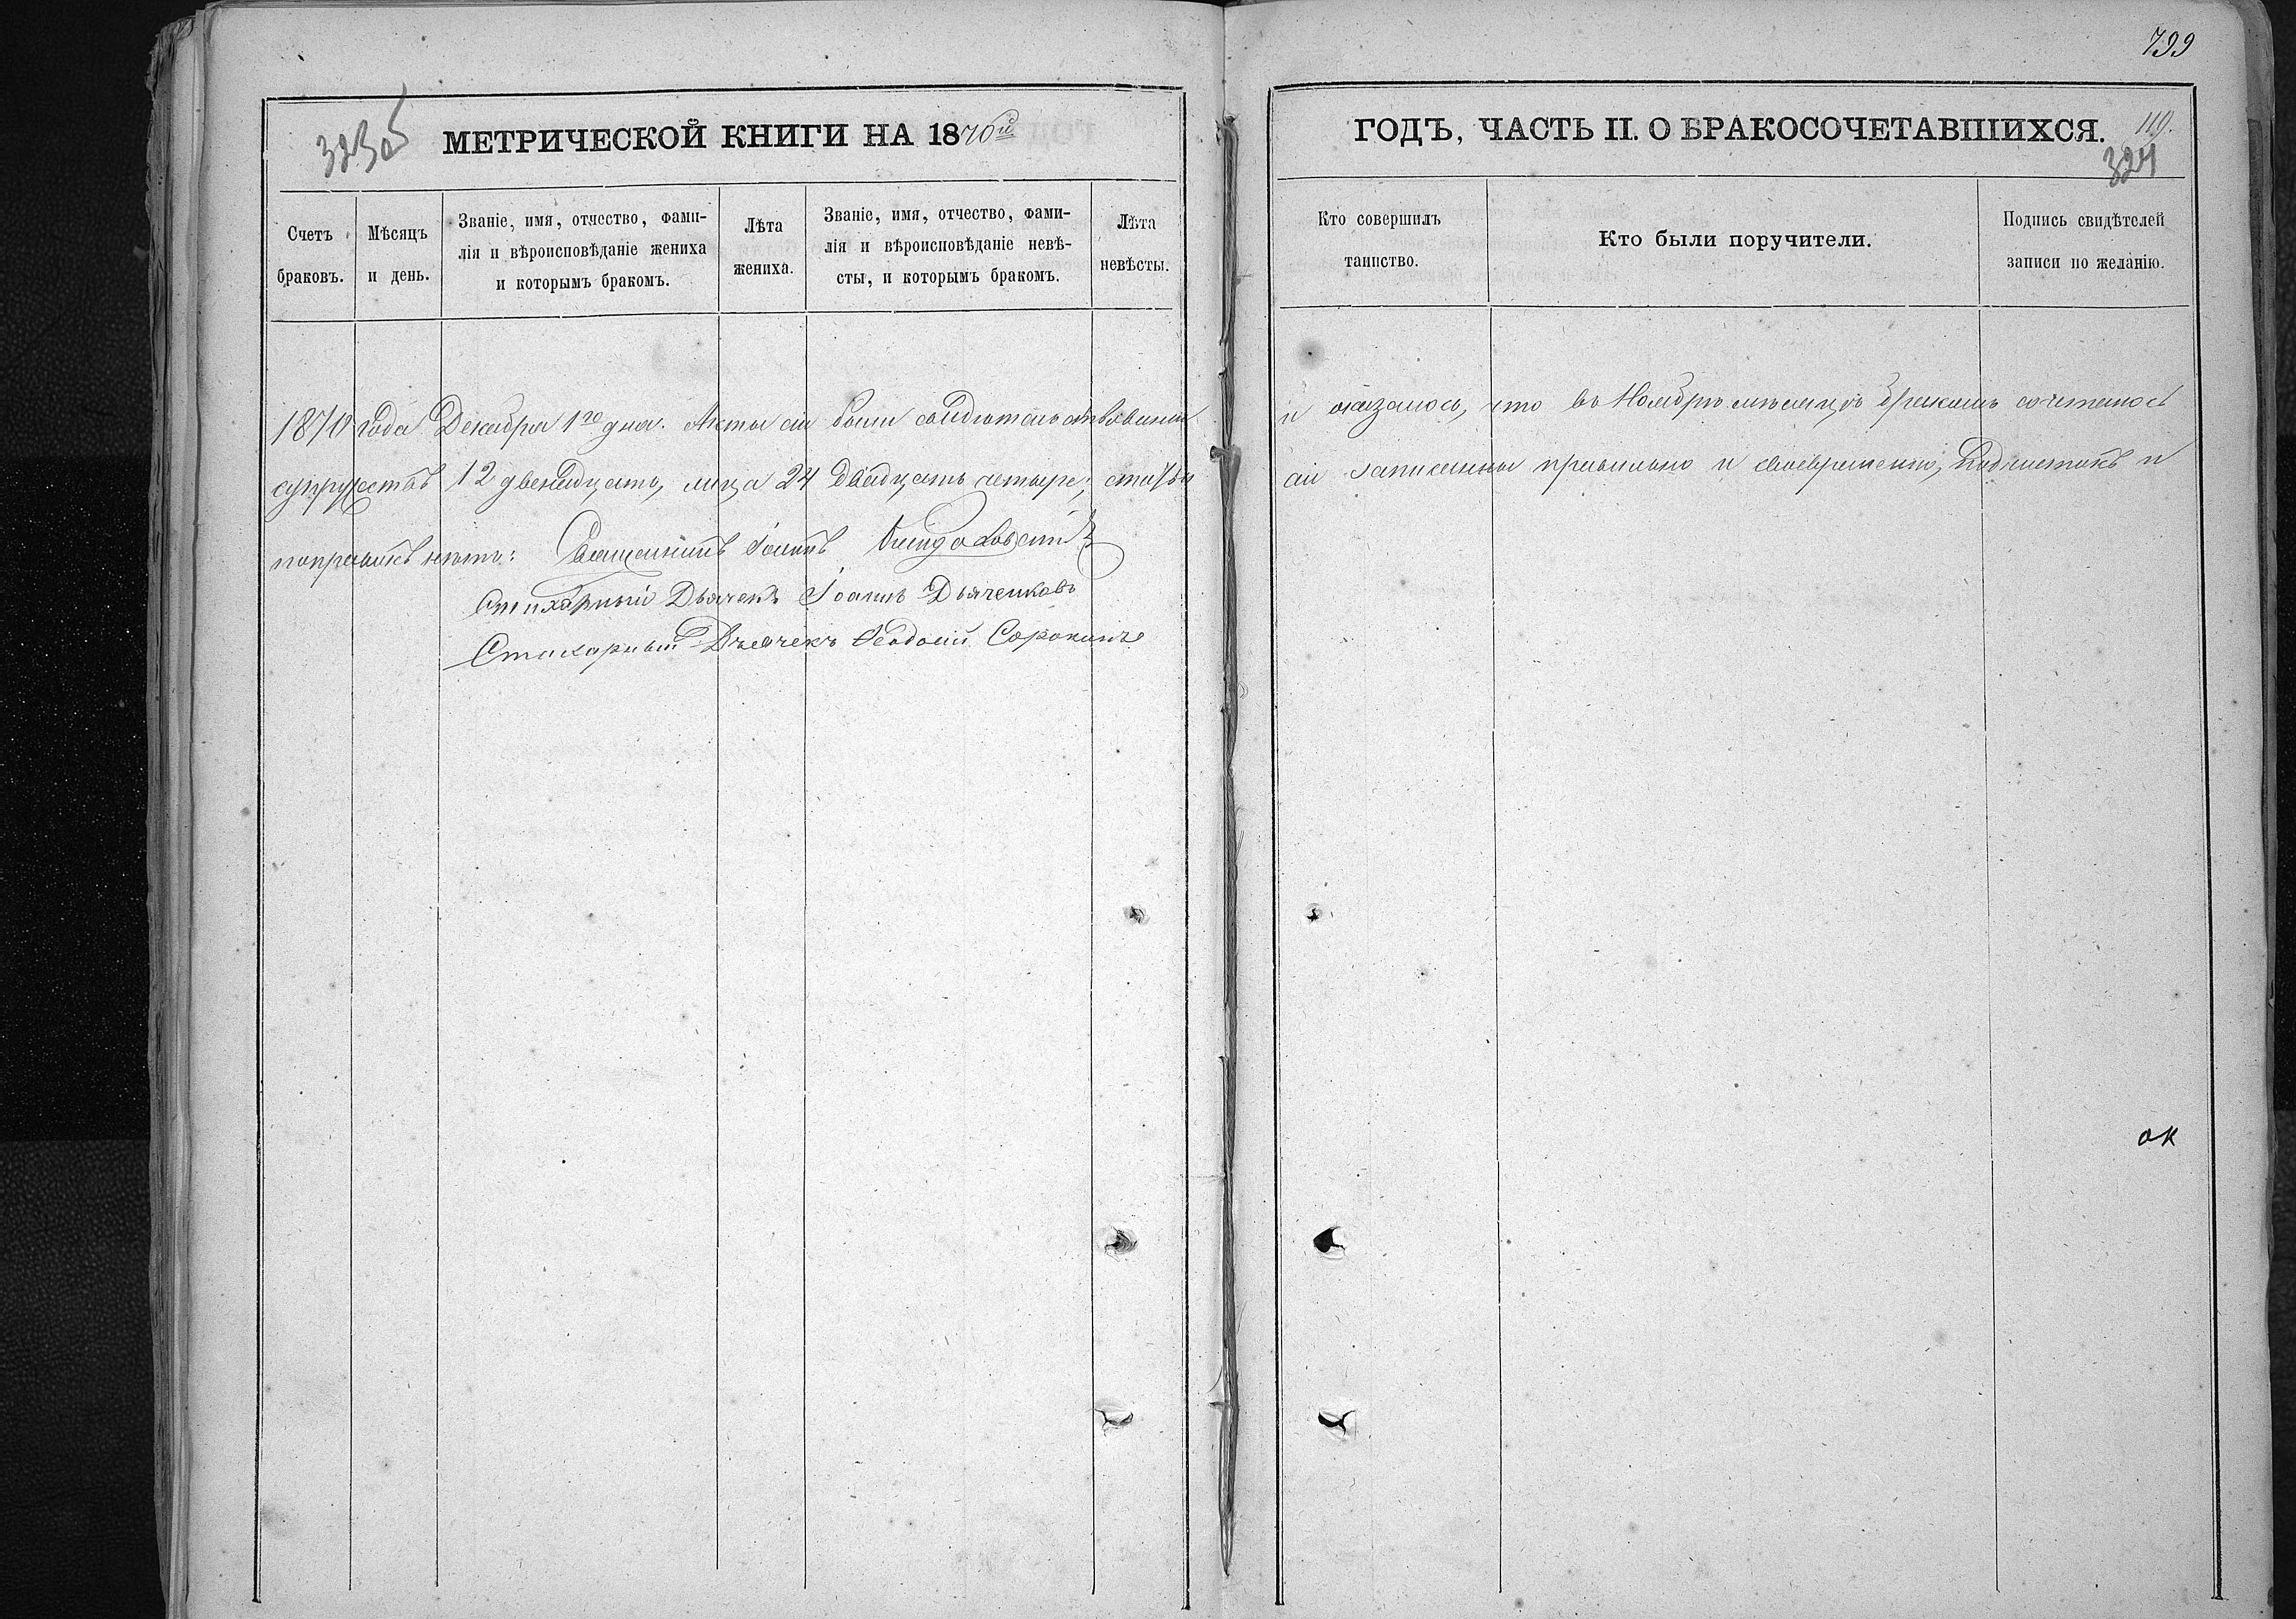 799
323 об
МЕТРИЧЕСКОЙ КНИГИ НА 1870й
ГОДЪ, ЧАСТЬ II. О БРАКОСОЧЕТАВШИХСЯ.
119.
324
Счетъ браковъ.
Мѣсяцъ и день.
Званіе, имя, отчество, фами-
лія и вѣроисповѣданіе жениха
и которымъ бракомъ.
Лѣта жениха.
Званіе, имя, отчество, фами-
лія и вѣроисповѣданіе невѣ-
сты, и которымъ бракомъ.
Лѣта невѣсты.
Кто совершилъ таинство.
Кто были поручители.
Подпись свидѣтелей
записи по желанію.
1870 года Декабря 1го дня. Акты сіи были свидѣтельствованы
и оказалось, что въ Ноябрѣ мѣсяцѣ бракомъ сочеталось
супружествъ 12 двенадцать, лица 24 двадцать четыре; статьи
сіи записаны правильно и своевременно, подчистокъ и
поправокъ нѣтъ: Священникъ Іоаннъ
Стихарный Дьячекъ Іоаннъ Дьяченковъ
Стихарный Дьячекъ Ѳеодосій Сорокинъ
ок